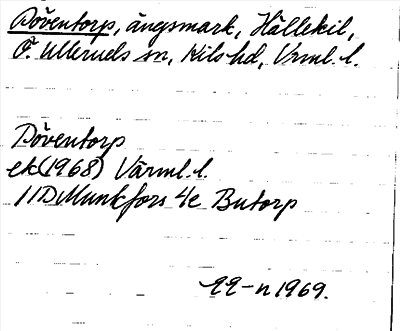 Döventorp, ängsmark, Hällekil,
Ö. Ulleruds sn, Kils hd, Vrml. l.
Döventorp
ek (1968) Värml. l.
11D Munkfors 4e Butorp
1969.